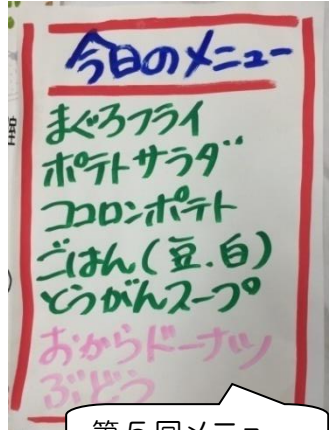 今日のメニュー
まぐろフライ
ポテトサラダ
ココロンポテト
ごはん(豆.白)
とうがんスープ
おからドーナツ
ぶどう
第5回メニュー